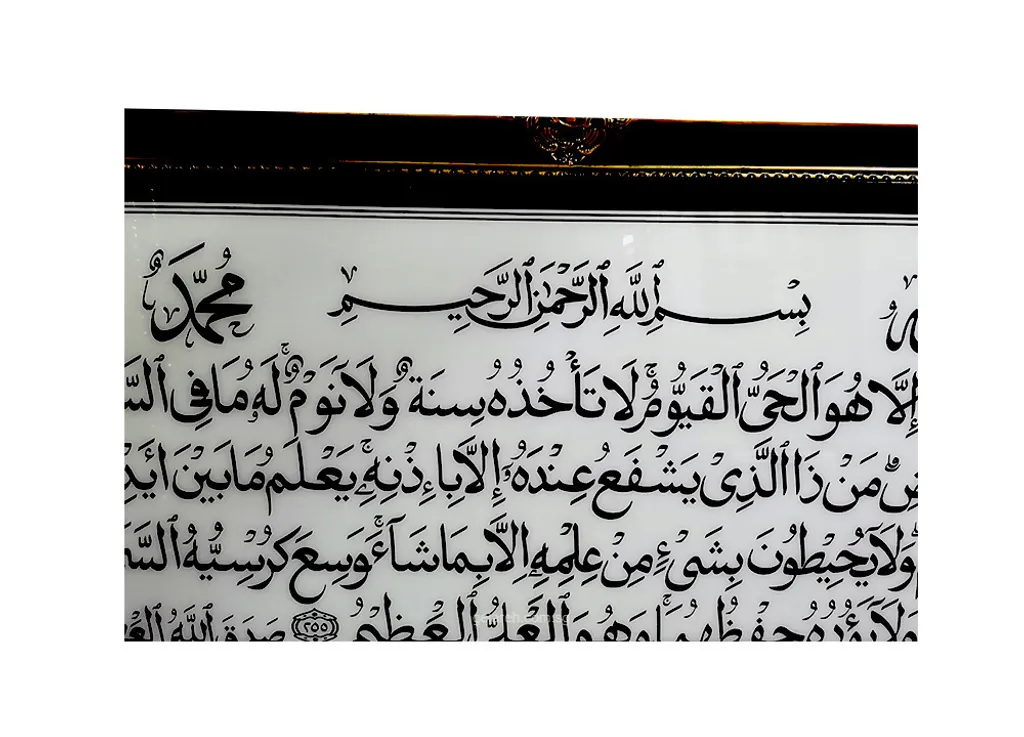 بِسْمِ اللَّهِ الرَّحْمَٰنِ الرَّحِيمِ مُحَمَّد
إِلَّا هُوَ الْحَيُّ الْقَيُّومُ ۚ لَا تَأْخُذُهُ سِنَةٌ وَلَا نَوْمٌ ۚ لَهُ مَا فِي
مَنْ ذَا الَّذِي يَشْفَعُ عِنْدَهُ إِلَّا بِإِذْنِهِ ۚ يَعْلَمُ مَا بَيْنَ
وَلَا يُحِيطُونَ بِشَيْءٍ مِنْ عِلْمِهِ إِلَّا بِمَا شَاءَ ۚ وَسِعَ كُرْسِيُّهُ
وَلَا يَئُودُهُ حِفْظُهُمَا ۚ وَهُوَ الْعَلِيُّ الْعَظِيمُ ٢٥٥ صَدَقَ اللَّهُ